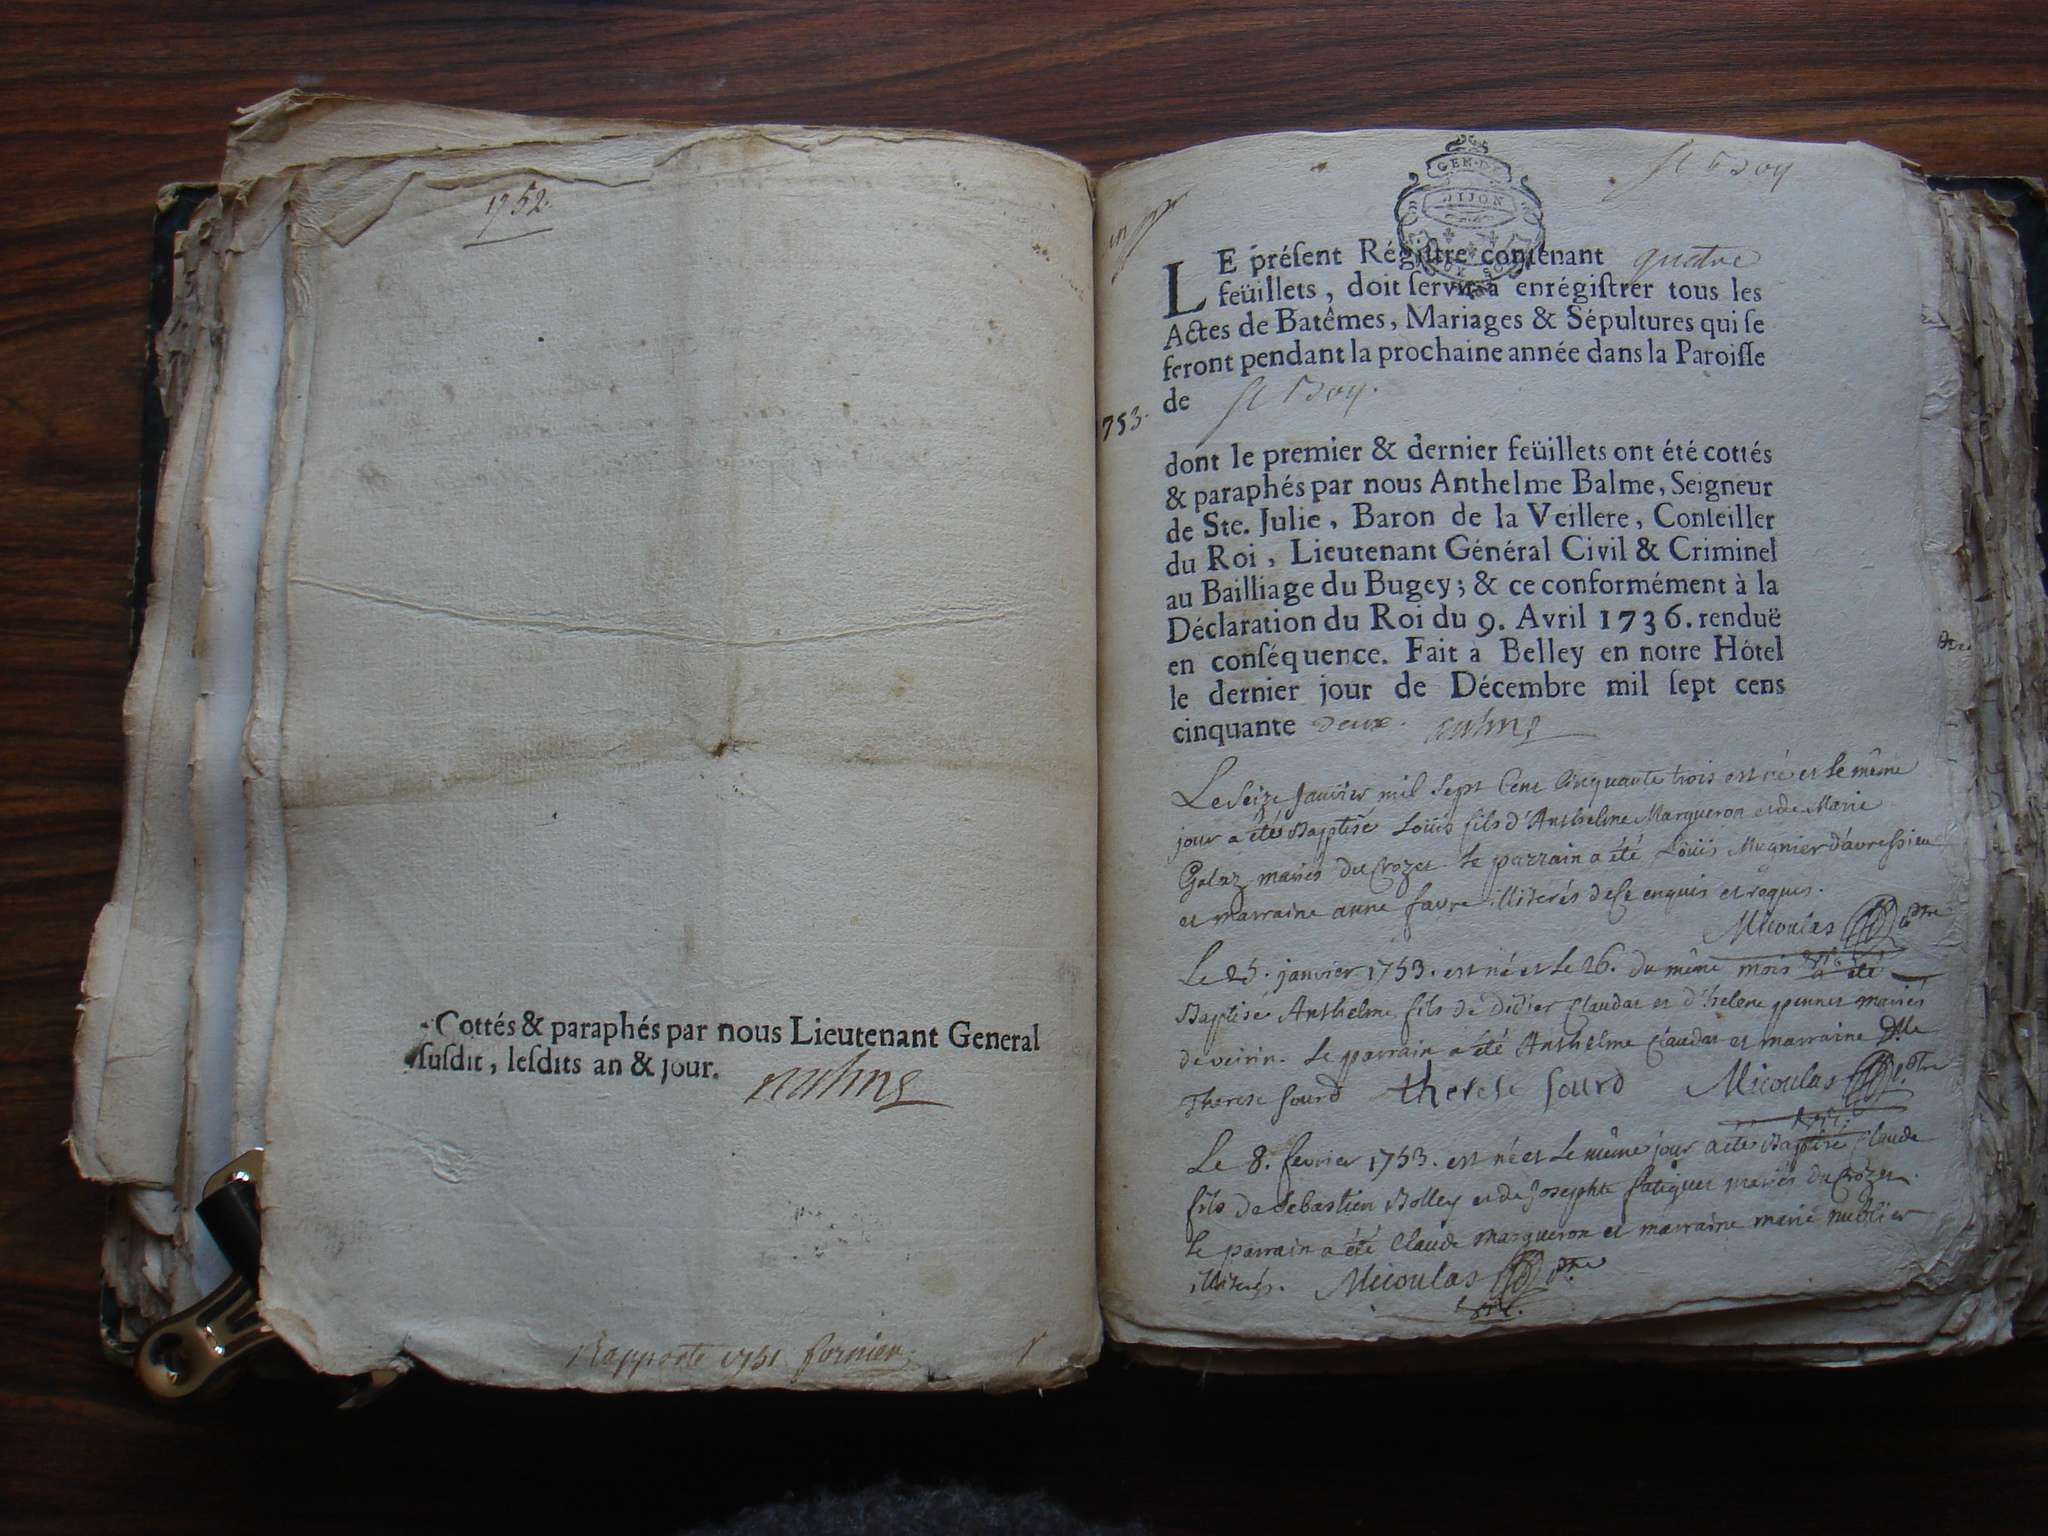 1752.
Cottés & paraphés par nous Lieutenant General
ſuſdit, leſdits an & jour.
Rapporté 1751 fornier
St Boy
GEN. DE
DIJON
LE préſent Régiſtre contenant quatre
feüillets, doit ſervir à enrégiſtrer tous les
Actes de Batêmes, Mariages & Sépultures qui ſe
feront pendant la prochaine année dans la Paroiſſe
de St Boy.
1753.
dont le premier & dernier feüillets ont été cottés
& paraphés par nous Anthelme Balme, Seigneur
de Ste. Julie, Baron de la Veillere, Conſeiller
du Roi, Lieutenant Général Civil & Criminel
au Bailliage du Bugey; & ce conformément à la
Déclaration du Roi du 9. Avril 1736. renduë
en conſéquence. Fait à Belley en notre Hôtel
le dernier jour de Décembre mil ſept cens
cinquante deux.
Le Seize Janvier mil Sept Cent Cinquante trois est né et le même
jour a été Baptisé Loüis fils d'Anthelme Margueron et de Marie
Galaz mariés du Crozet le parrain a été Loüis Mugnier d'avressieu
et marraine anne favre illiterés de ce enquis et requis.
Micoulas ptre
Le 25. janvier 1753. est né et le 26. du même mois a été
Baptisé Anthelme fils de Didier Claudat et d'helene pennet mariés
de veirin. Le parrain a été Anthelme Claudat et marraine Dlle
Therese Sourd therese sourd Micoulas ptre
Le 8. fevrier 1753. est né et le même jour a été Baptisé Claude
fils de Sebastien Bolley et de Josephte fatiguet mariés du Crozet.
le parrain a été Claude Margueron et marraine marie nublier
illiterés. Micoulas ptre